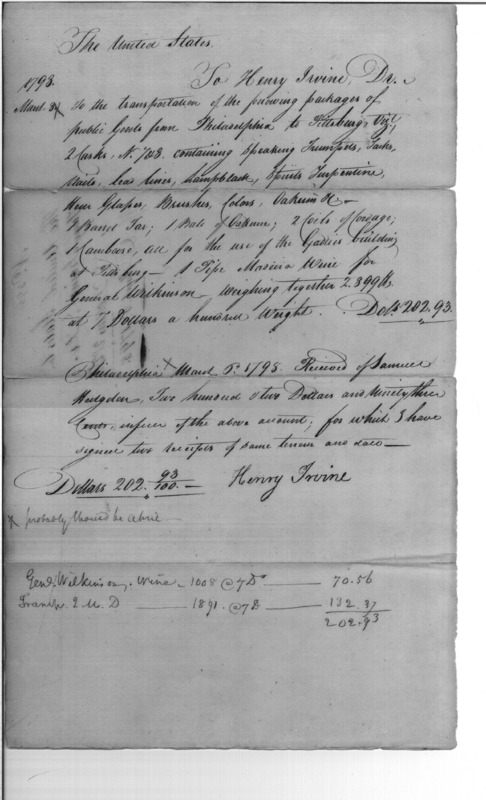 The United States.
1798. To Henry Irvine, Dr.
March 3 x To the transportation of the following packages of
public Goods from Philadelphia to Pittsburg, Viz,
2 Casks, No. 7&8. containing Speaking Trumpets, Tacks,
Nails, Sea lines, Lampblack, Spirits Turpentine,
Hour Glasses, Brushes, Colors, Oakum &c—
7 Barrels Tar; 1 Bale of Oakum; 2 Coils of Cordage;
1 Camboose, all for the use of the Gallies building
at Pittsburg— 1 Pipe Madeira Wine for
General Wilkinson, weighing together 2.899 lb
at 7 Dollars a hundred Weight. Dolls. 202.93.
Philadelphia x March 5. 1798. Received of Samuel
Hodgdon, Two hundred & two Dollars and Ninety three
Cents, in full of the above account; for which I have
signed two receipts of same tenour and date—
Dollars 202. 93/100.— Henry Irvine
x probably should be April—
Genl. Wilkinson, Wine— 1008 @ 7 D — 70.56
Transp. Q M D — 1891. @ 7 D — 132.37
202.93